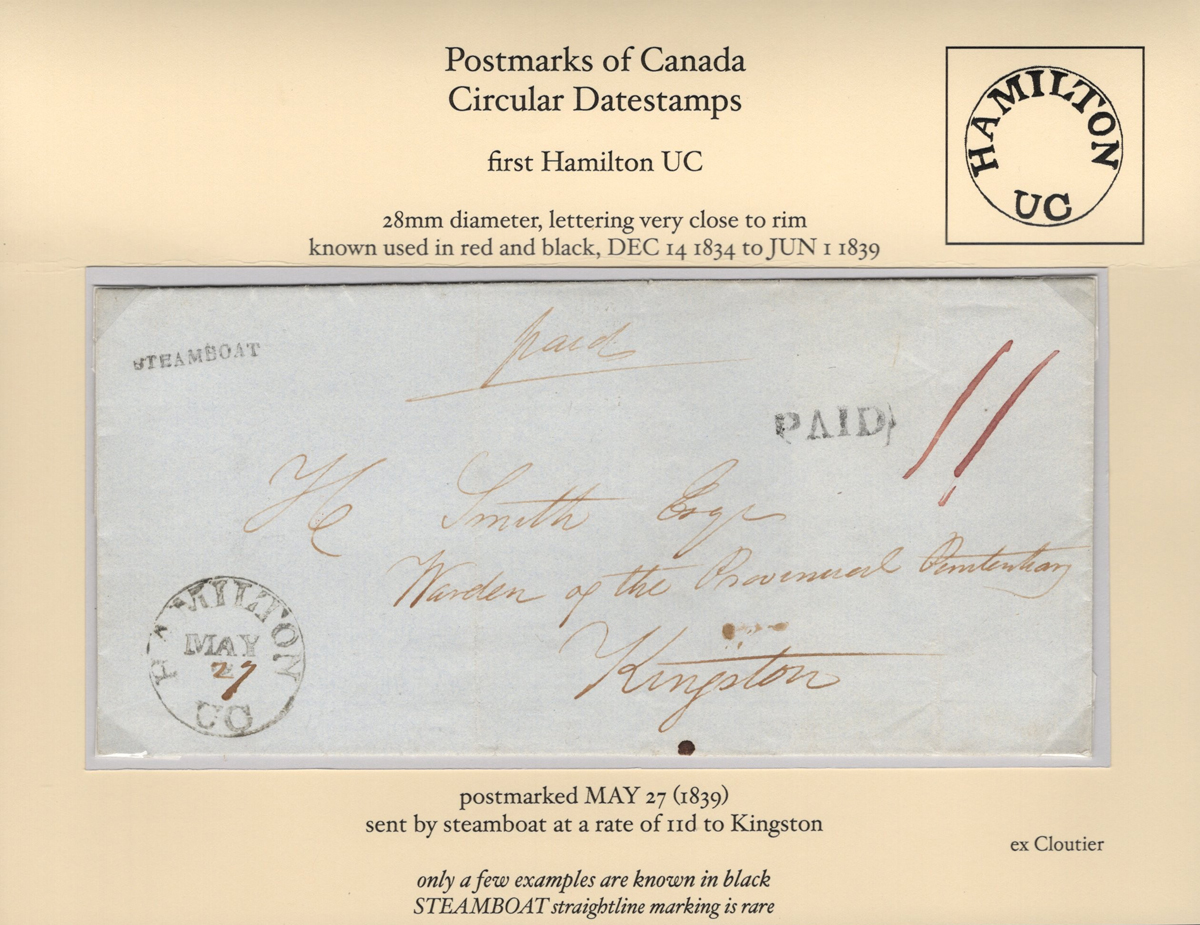 Postmarks of Canada
Circular Datestamps
HAMILTON
UC
first Hamilton UC
28mm diameter, lettering very close to rim
known used in red and black, DEC 14 1834 to JUN 1 1839
STEAMBOAT
paid
PAID
11
H Smith Esqr
Warden of the Provincial Penitentiary
Kingston
HAMILTON
MAY
27
UC
postmarked MAY 27 (1839)
sent by steamboat at a rate of 11d to Kingston
ex Cloutier
only a few examples are known in black
STEAMBOAT straightline marking is rare